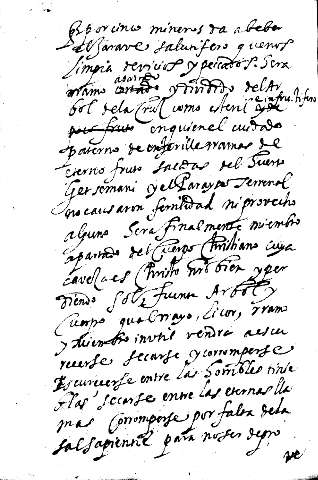 por cinco mineros da a beber
el Jarave salutifero que nos
limpia de vicios y peccados Sera
rramo apartado y dividido del Ar
bol de la Cruz como esteril e infructifero
en quien el cuidado
paterno de enxerille rramas de
eterno fruto sacdas del huerto
Getsemani y el Parayso terrenal
no causaron fertilidad ni provecho
alguno Sera finalmente miembro
apartado del Cuerpo Christiano cuya
caveza es Christo nro bien y per
diendo Sol, fuente Arbol, y
Cuerpo qual rrayo, licor, rramo
y miembro inutil vendra a escu
recerse secarse y corromperse
Escurecerse entre las horribles tinie
blas, secarse entre las eternas lla
mas corromperse por falta de la
sal sapientie para no ser de pro
ve